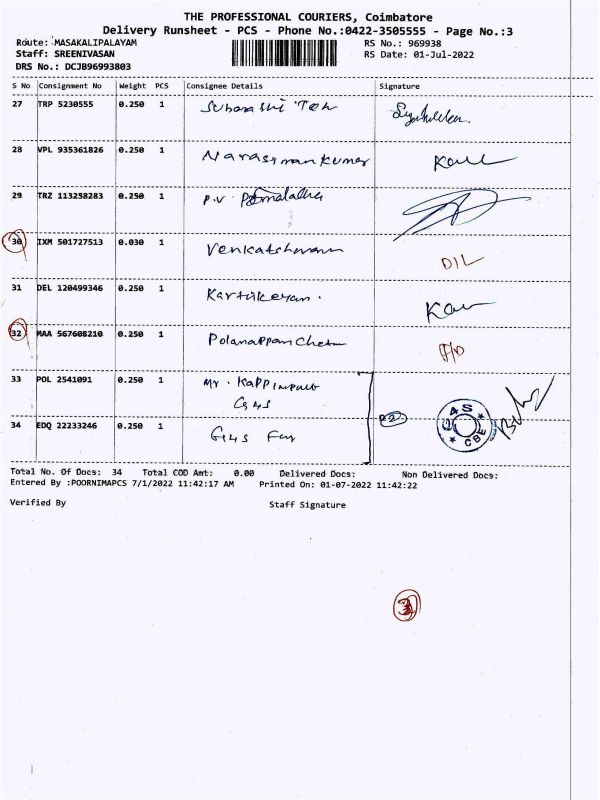 THE PROFESSIONAL COURIERS, Coimbatore
Delivery Runsheet - PCS - Phone No.:0422-3505555 - Page No.:3
Route: MASAKALIPALAYAM RS No.: 969938
Staff: SREENIVASAN RS Date: 01-Jul-2022
DRS No.: DCJB96993803
S No Consignment No Weight PCS Consignee Details Signature
27 TRP 5230555 0.250 1
28 VPL 935361826 0.250 1 Narasimankumar
29 TRZ 113258283 0.250 1 P.V
30 IXM 501727513 0.030 1 D/L
31 DEL 120499346 0.250 1 Kartikeyan.
32 MAA 567608210 0.250 1
33 POL 2541091 0.250 1 Mr.
G4S
34 EDQ 22233246 0.250 1 G4S 22 G4S CBE
Total No. Of Docs: 34 Total COD Amt: 0.00 Delivered Docs: Non Delivered Docs:
Entered By :POORNIMAPCS 7/1/2022 11:42:17 AM Printed On: 01-07-2022 11:42:22
Verified By Staff Signature
3